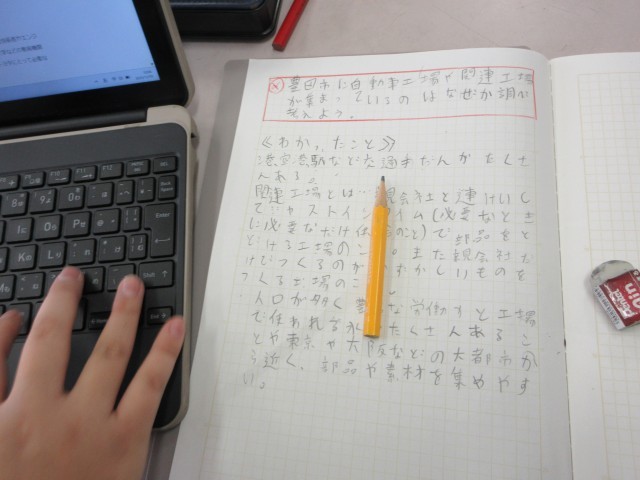 豊田市に自動車工場や関連工場
が集まっているのはなぜか調べ
考えよう。
《わかったこと》
港空港駅など交通きかんがたくさ
んある。
関連工場とは…親会社と連けいし
てジャストインタイム(必要なとき
に必要なだけ)で部品をと
どける工場のこと。また親会社だ
けでつくるのがむずかしいものを
つくる工場のこと。
人口が多く 豊な労働力と工場
で使われる たくさんあるこ
とや東京や大阪などの大都市か
ら近く、部品や素材を集めやす
い。
Enter
Shift